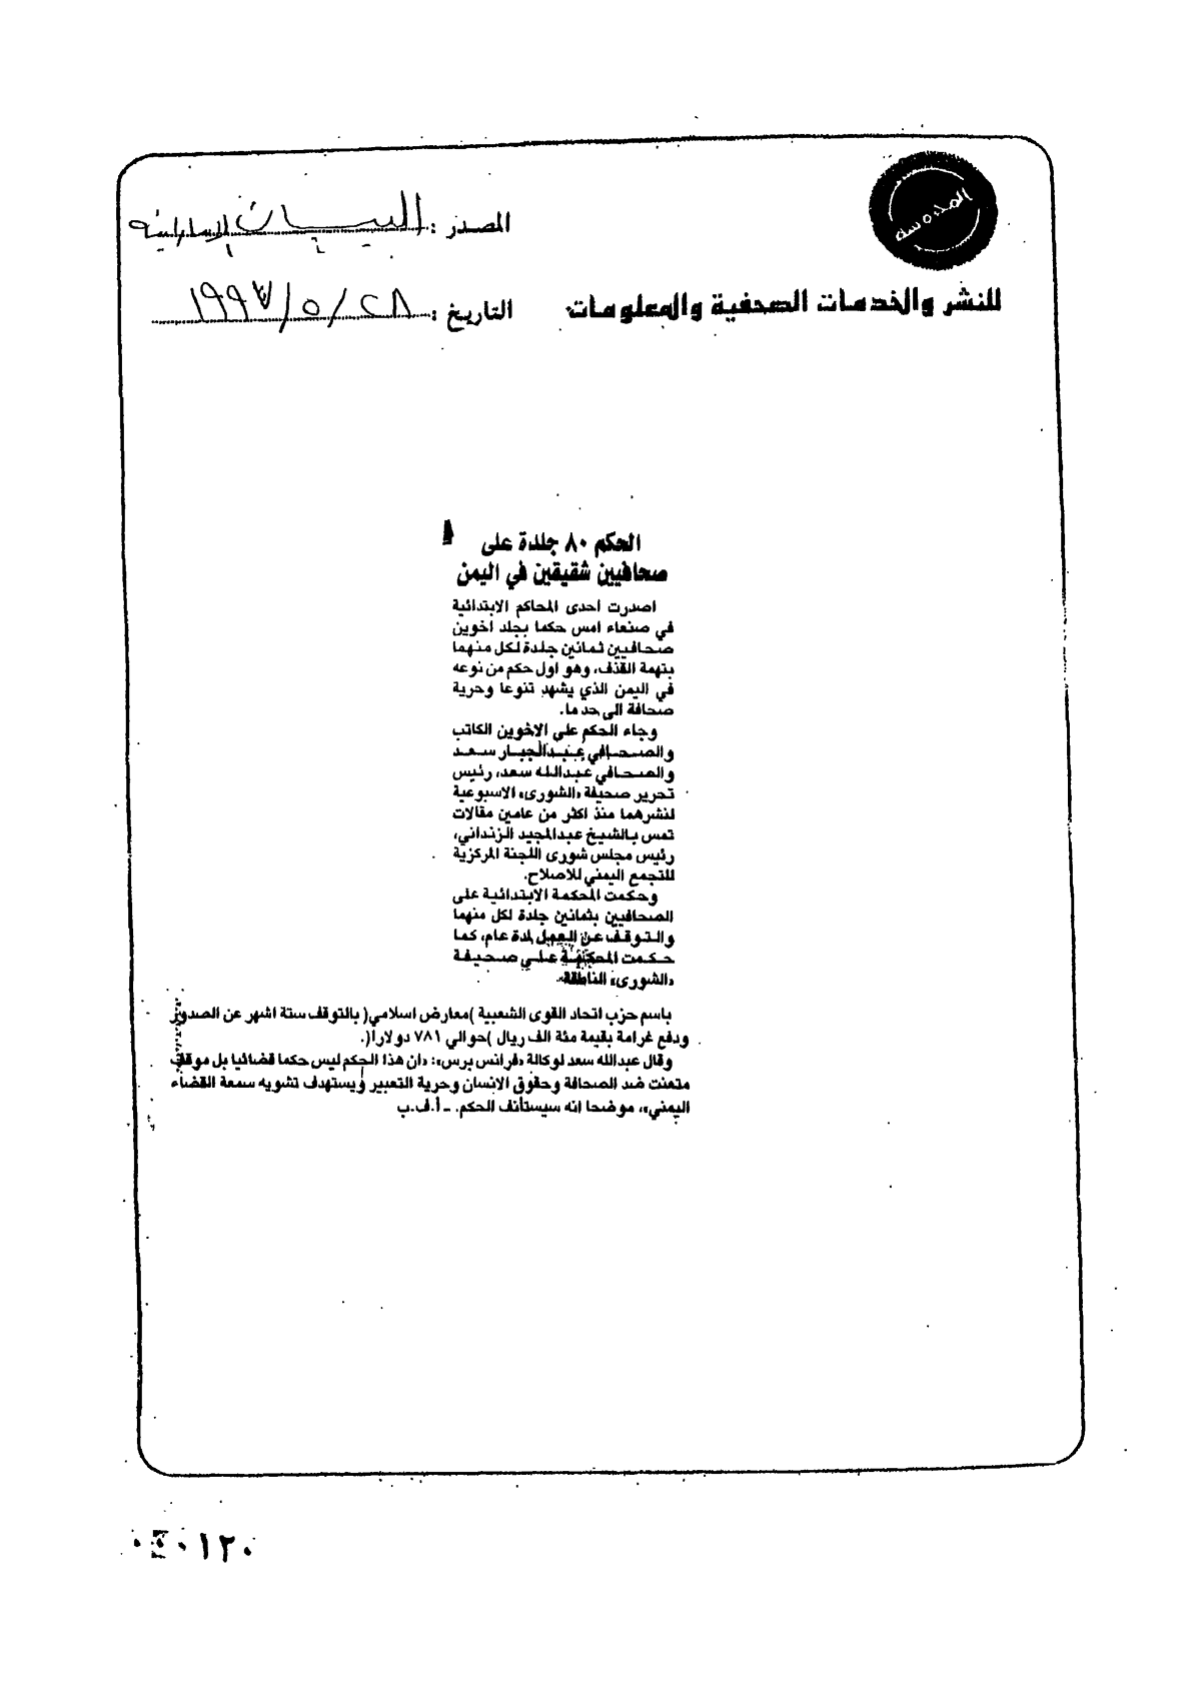 المصدر : البيان الإماراتية
للنشر والخدمات الصحفية والمعلومات
التاريخ : ٢٨ / ٥ / ١٩٩٧
الحكم ٨٠ جلدة على
صحافيين شقيقين في اليمن
اصدرت احدى المحاكم الابتدائية
في صنعاء امس حكما بجلد اخوين
صحافيين ثمانين جلدة لكل منهما
بتهمة القذف، وهو اول حكم من نوعه
في اليمن الذي يشهد تنوعا وحرية
صحافة الى حد ما.
وجاء الحكم على الاخوين الكاتب
والصحافي عبدالجبار سعد
والصحافي عبدالله سعد، رئيس
تحرير صحيفة «الشورى» الاسبوعية
لنشرهما منذ اكثر من عامين مقالات
تمس بالشيخ عبدالمجيد الزنداني،
رئيس مجلس شورى اللجنة المركزية
للتجمع اليمني للاصلاح.
وحكمت المحكمة الابتدائية على
الصحافيين بثمانين جلدة لكل منهما
والتوقف عن العمل لمدة عام، كما
حكمت المحكمة على صحيفة
«الشورى» الناطقة
باسم حزب اتحاد القوى الشعبية )معارض اسلامي( بالتوقف ستة اشهر عن الصدور
ودفع غرامة بقيمة مئة الف ريال )حوالي ٧٨١ دولارا(.
وقال عبدالله سعد لوكالة «فرانس برس»: «ان هذا الحكم ليس حكما قضائيا بل موقف
متعنت ضد الصحافة وحقوق الانسان وحرية التعبير ويستهدف تشويه سمعة القضاء
اليمني»، موضحا انه سيستأنف الحكم. ـ أ.ف.ب